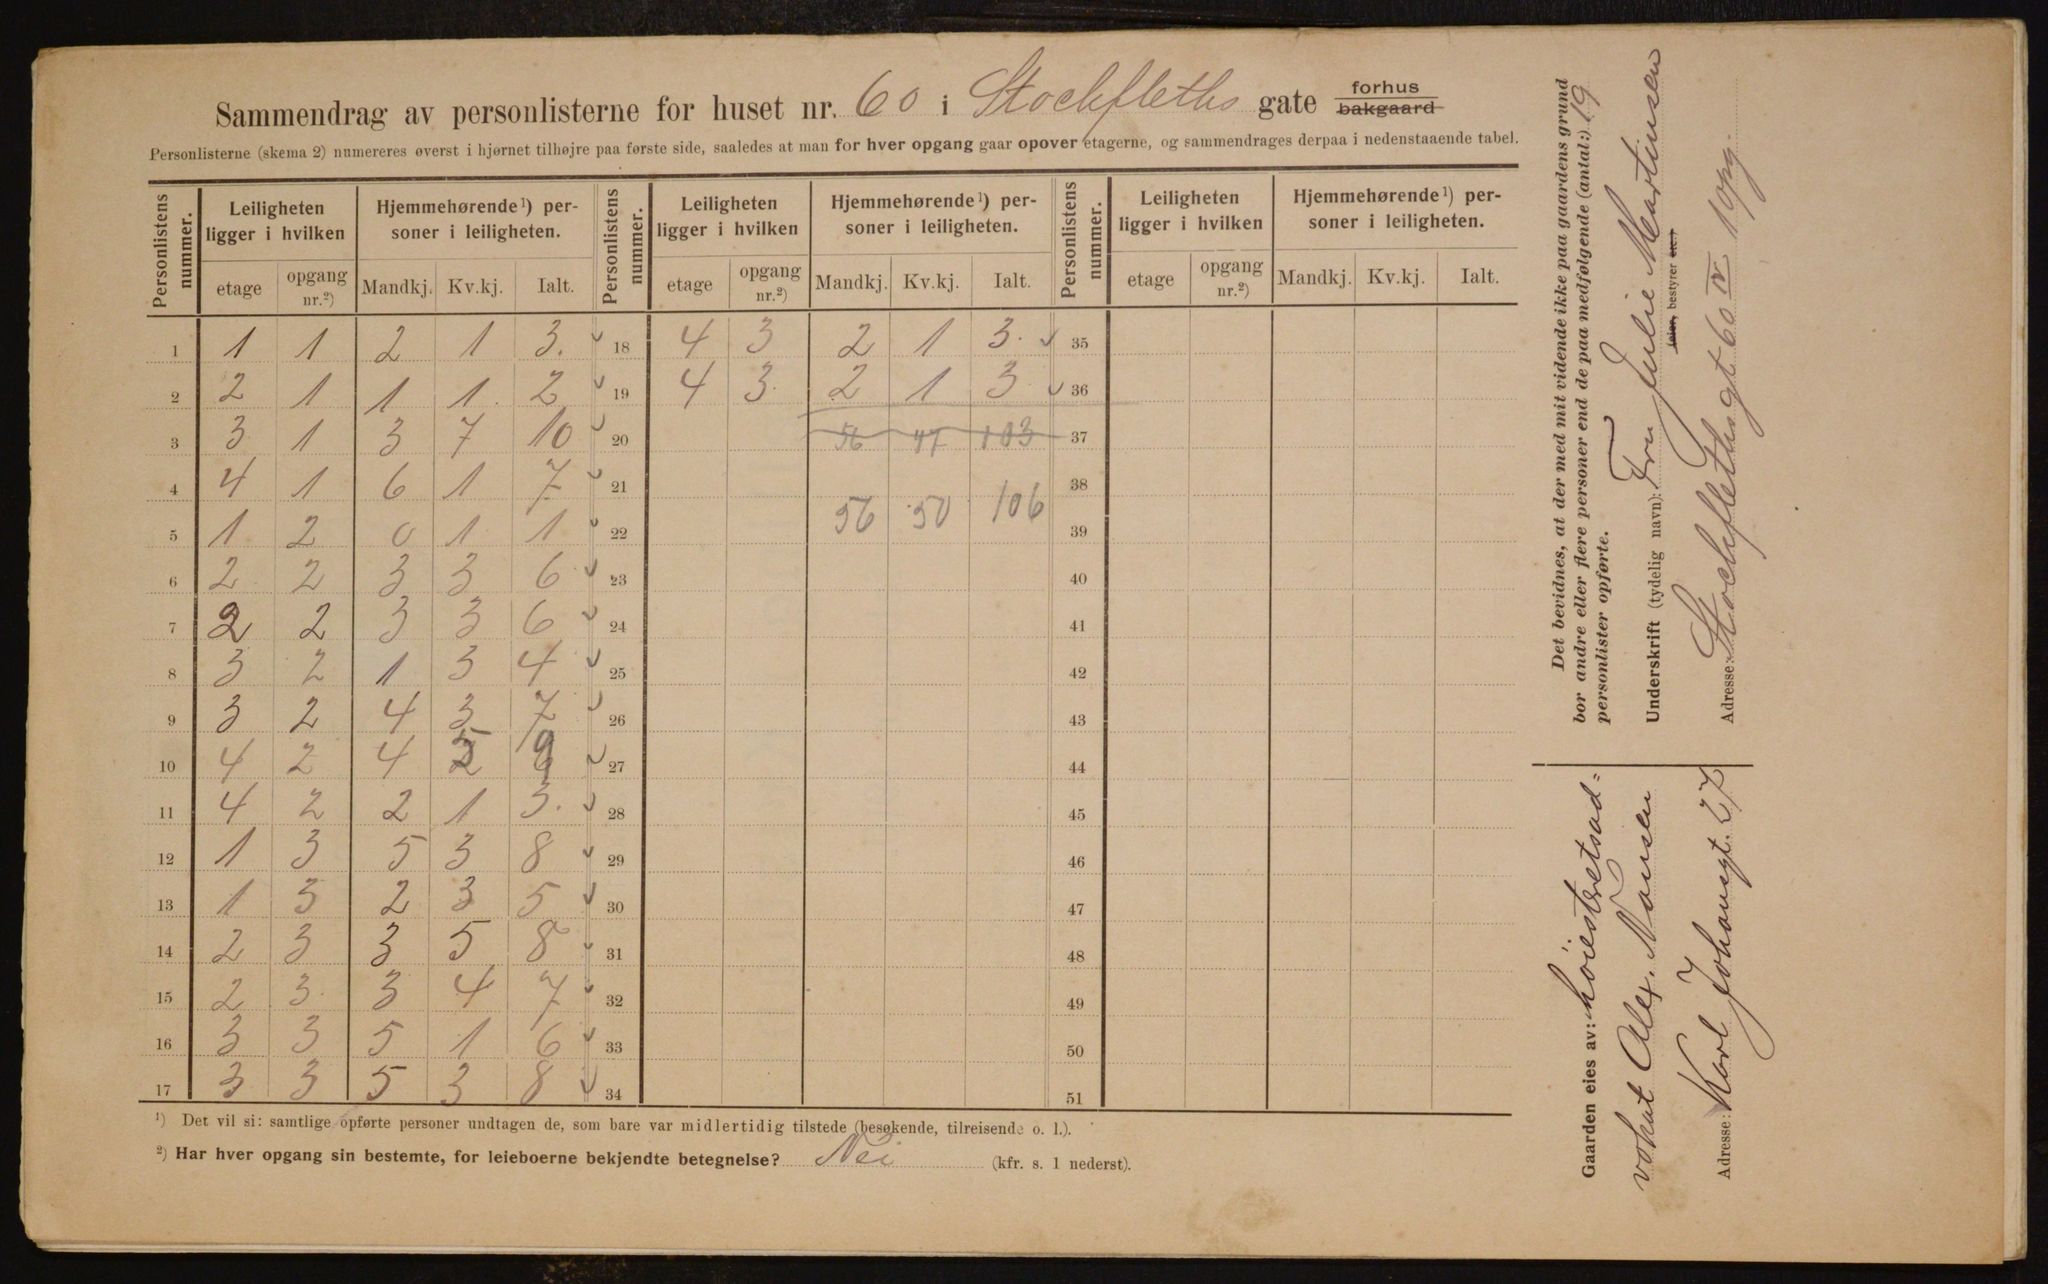 Sammendrag av personlisterne for huset nr. 60 i Stockfleths gate forhus bakgaard
Personlisterne (skema 2) numereres øverst i hjørnet tilhøjre paa første side, saaledes at man for hver opgang gaar opover etagerne, og sammendrages derpaa i nedenstaaende tabel.
Personlistens nummer. Leiligheten ligger i hvilken Hjemmehørende¹) personer i leiligheten. Personlistens nummer. Leiligheten ligger i hvilken Hjemmehørende¹) personer i leiligheten. Personlistens nummer. Leiligheten ligger i hvilken Hjemmehørende¹) personer i leiligheten.
etage opgang nr.²) Mandkj. Kv.kj. Ialt. etage opgang nr.²) Mandkj. Kv.kj. Ialt. etage opgang nr.²) Mandkj. Kv.kj. Ialt.
1 1 1 2 1 3. 18 4 3 2 1 3. 35
2 2 1 1 1 2 19 4 3 2 1 3 36
3 3 1 3 7 10 20 56 47 103 37
4 4 1 6 1 7 21 38
56 50 106
5 1 2 0 1 1 22 39
6 2 2 3 3 6 23 40
7 2 2 3 3 6 24 41
8 3 2 1 3 4 25 42
9 3 2 4 3 7 26 43
10 4 2 4 5 9 27 44
11 4 2 2 1 3. 28 45
12 1 3 5 3 8 29 46
13 1 3 2 3 5 30 47
14 2 3 3 5 8 31 48
15 2 3 3 4 7 32 49
16 3 3 5 1 6 33 50
17 3 3 5 3 8 34 51
¹) Det vil si: samtlige opførte personer undtagen de, som bare var midlertidig tilstede (besøkende, tilreisende o. l.).
²) Har hver opgang sin bestemte, for leieboerne bekjendte betegnelse? Nei (kfr. s. 1 nederst).
Det bevidnes, at der med mit vidende ikke paa gaardens grund
bor andre eller flere personer end de paa medfølgende (antal:) 19
personlister opførte.
Underskrift (tydelig navn): Fru Julie Martinsen
leier, bestyrer etc.)
Adresse: Stockflethsgt 60 IV 1 opg.
Gaarden eies av: höiesteretsad-
vokat Alex. Nansen
Adresse: Karl Johansgt. 27